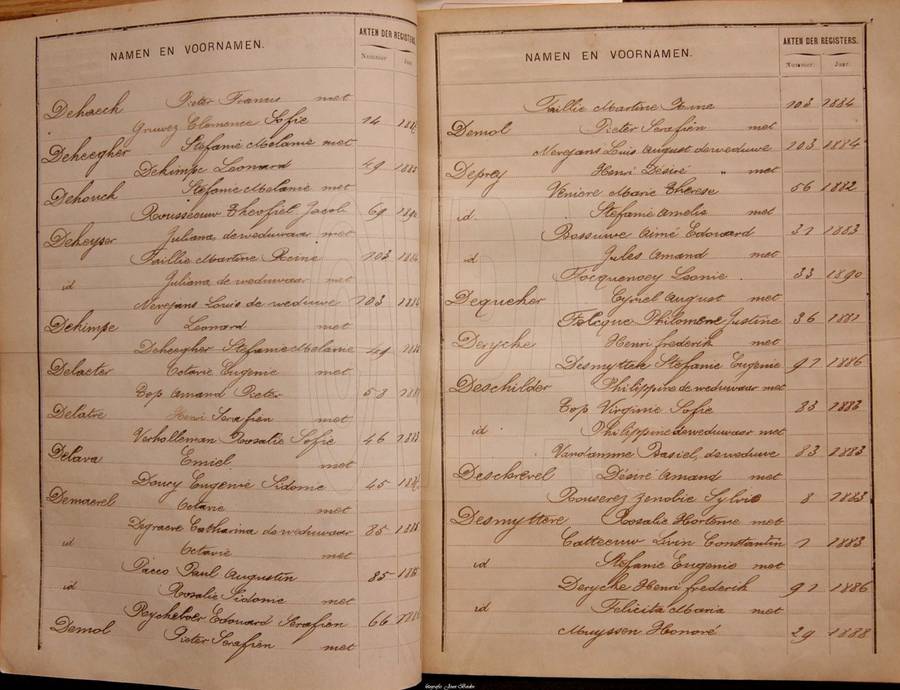 NAMEN EN VOORNAMEN. AKTEN DER REGISTERS.
Nummer Jaar
Dehaeck Pieter Francis met
Gruwez Clemence Sofie 14
Deheegher Stefanie Melanie met
Dehimpe Leonard 49 1885
Dehouck Stefanie Melanie met
Rousseeuw Theofiel Jacob 69
Deheyser Juliana de weduwaar met
Taillie Martine Reine 103 1884
id Juliana de weduwaar met
Merejans Louis de weduwe 103 1884
Dehimpe Leonard met
Deheegher Stefanie Melanie 49 1885
Delaeter Octavie Eugenie met
Top Amand Pieter 53
Delatre Henri Serafien met
Verholleman Rosalie Sofie 46
Delava Emiel met
Doucy Eugenie Sidonie 45
Demaerel Octavie met
Degraeve Catharina de weduwaar 85
id Octavie met
Pacco Paul Augustin 85
id Rosalie Sidonie met
Reycheboer Edouard Serafien 66
Demol Pieter Serafien met
NAMEN EN VOORNAMEN. AKTEN DER REGISTERS.
Nummer: Jaar
Taillie Martine Reine 103 1884
Demol Pieter Serafien met
Merejans Louis August de weduwe 103 1884
Deprey Henri Désiré " met
Veniere Marie Therese 56 1882
id. Stefanie Amelie met
Bossuwe Aimé Edouard 31 1883
id Jules Amand met
Tocquenoey Leonie 33 1890
Dequeker Cyriel August met
Folcque Philomene Justine 36 1881
Derycke Henri frederik met
Desmyttere Stefanie Eugenie 91 1886
Deschilder Philippine de weduwaar met
Top Virginie Sofie 83 1883
id Philippine de weduwaar met
Vandamme Basiel, de weduwe 83 1883
Deschrevel Désiré Amand met
Rouserez Zenobie Sylvie 8 1883
Desmyttere Rosalie Hortense met
Catteeuw Livin Constantin 1 1883
id Stefanie Eugenie met
Derycke Henri frederik 91 1886
id Felicita Maria met
Muyssen Honoré 29 1888